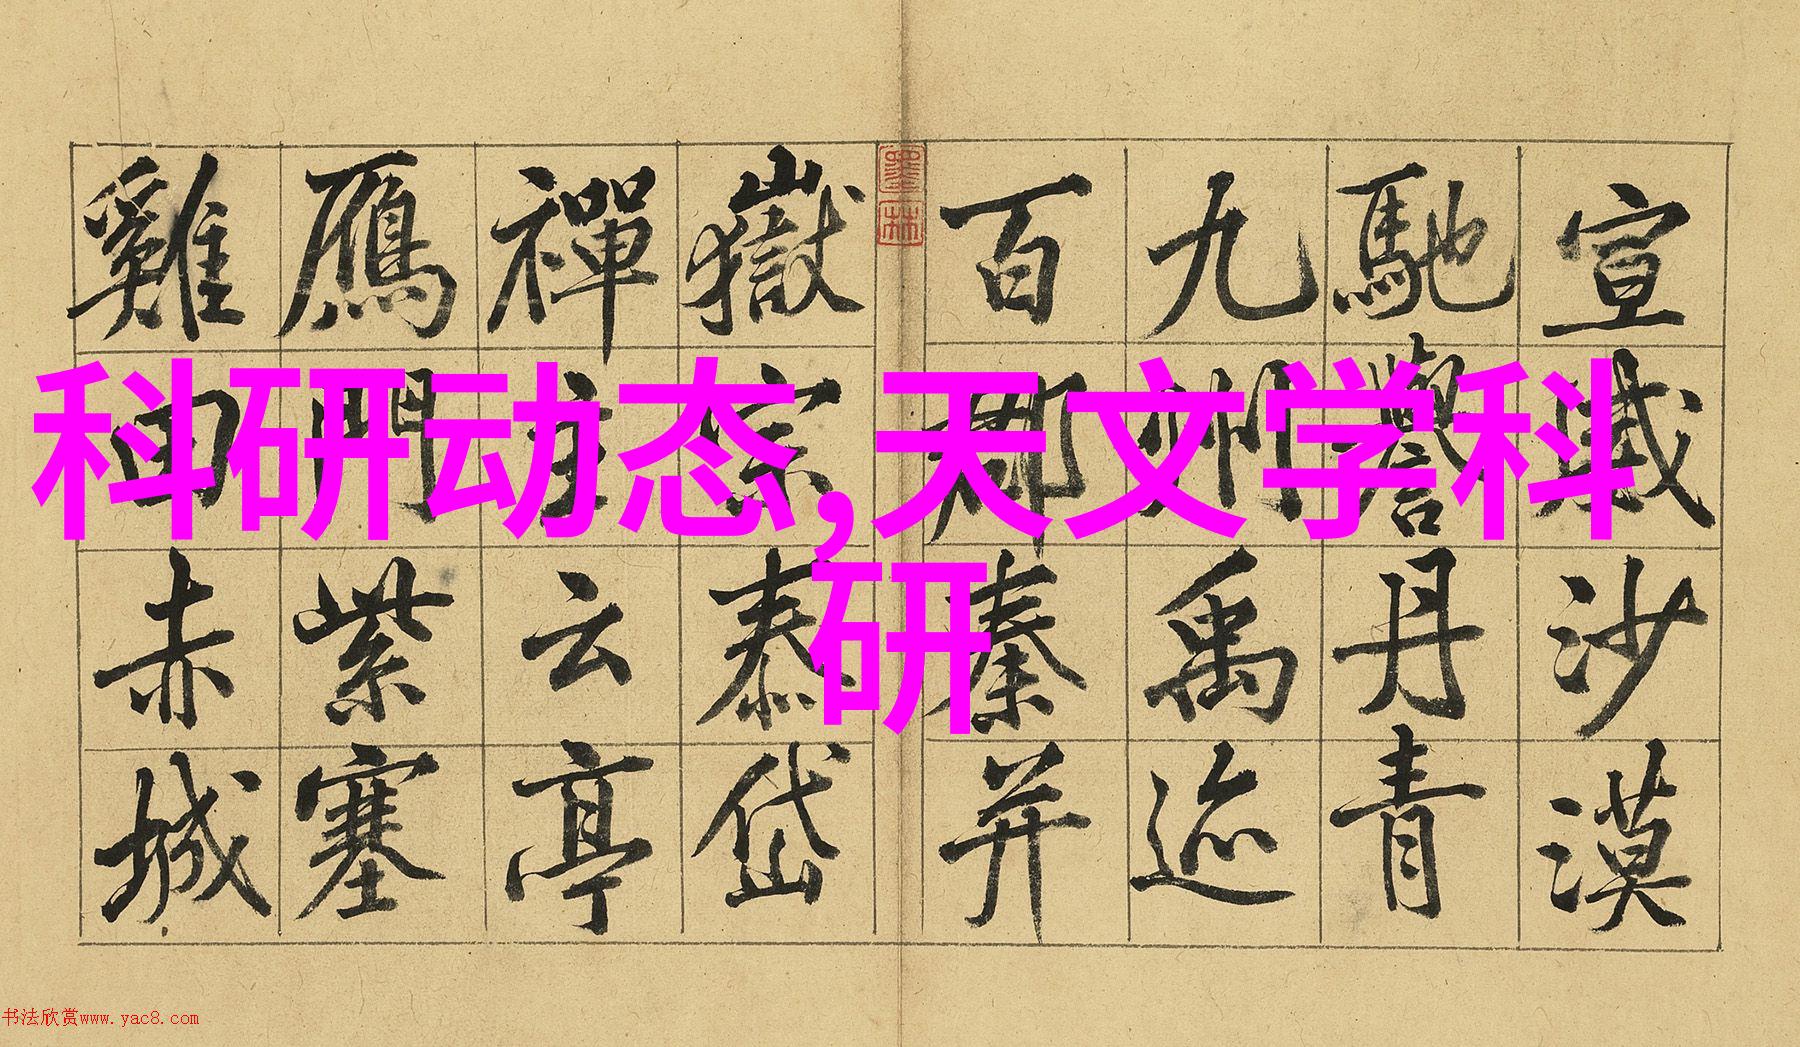 宣威沙漠
馳譽丹青
九州禹迹
百郡秦并
嶽宗泰岱
禪主云亭
鴈門紫塞
雞田赤城
墨林
科研动态,天文学科
研
书法欣赏www.yac8.com